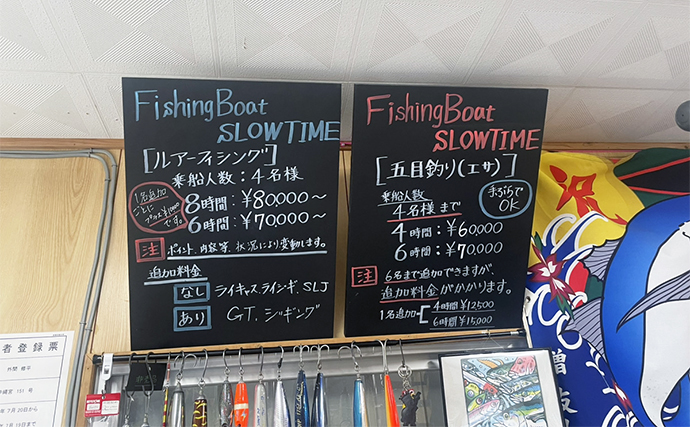 FishingBoat
SLOWTIME
[ルアーフィシング]
乗船人数：4名様
1名追加
ごとに
です。
8時間：¥80,000～
6時間：¥70,000～
注 ポイント、内容等、状況により変動します。
追加料金
なし ライキャス、ライジギ、SLJ
あり GT、ジギング
FishingBoat
SLOWTIME
[五目釣り(エサ)]
乗船人数
4名様まで
手ぶらで
OK
4時間：¥60,000
6時間：¥70,000
注 6名まで追加できますが、
追加料金がかかります。
1名追加 4時間¥12,500
6時間¥15,000
者登録票
151 号
7月20日から